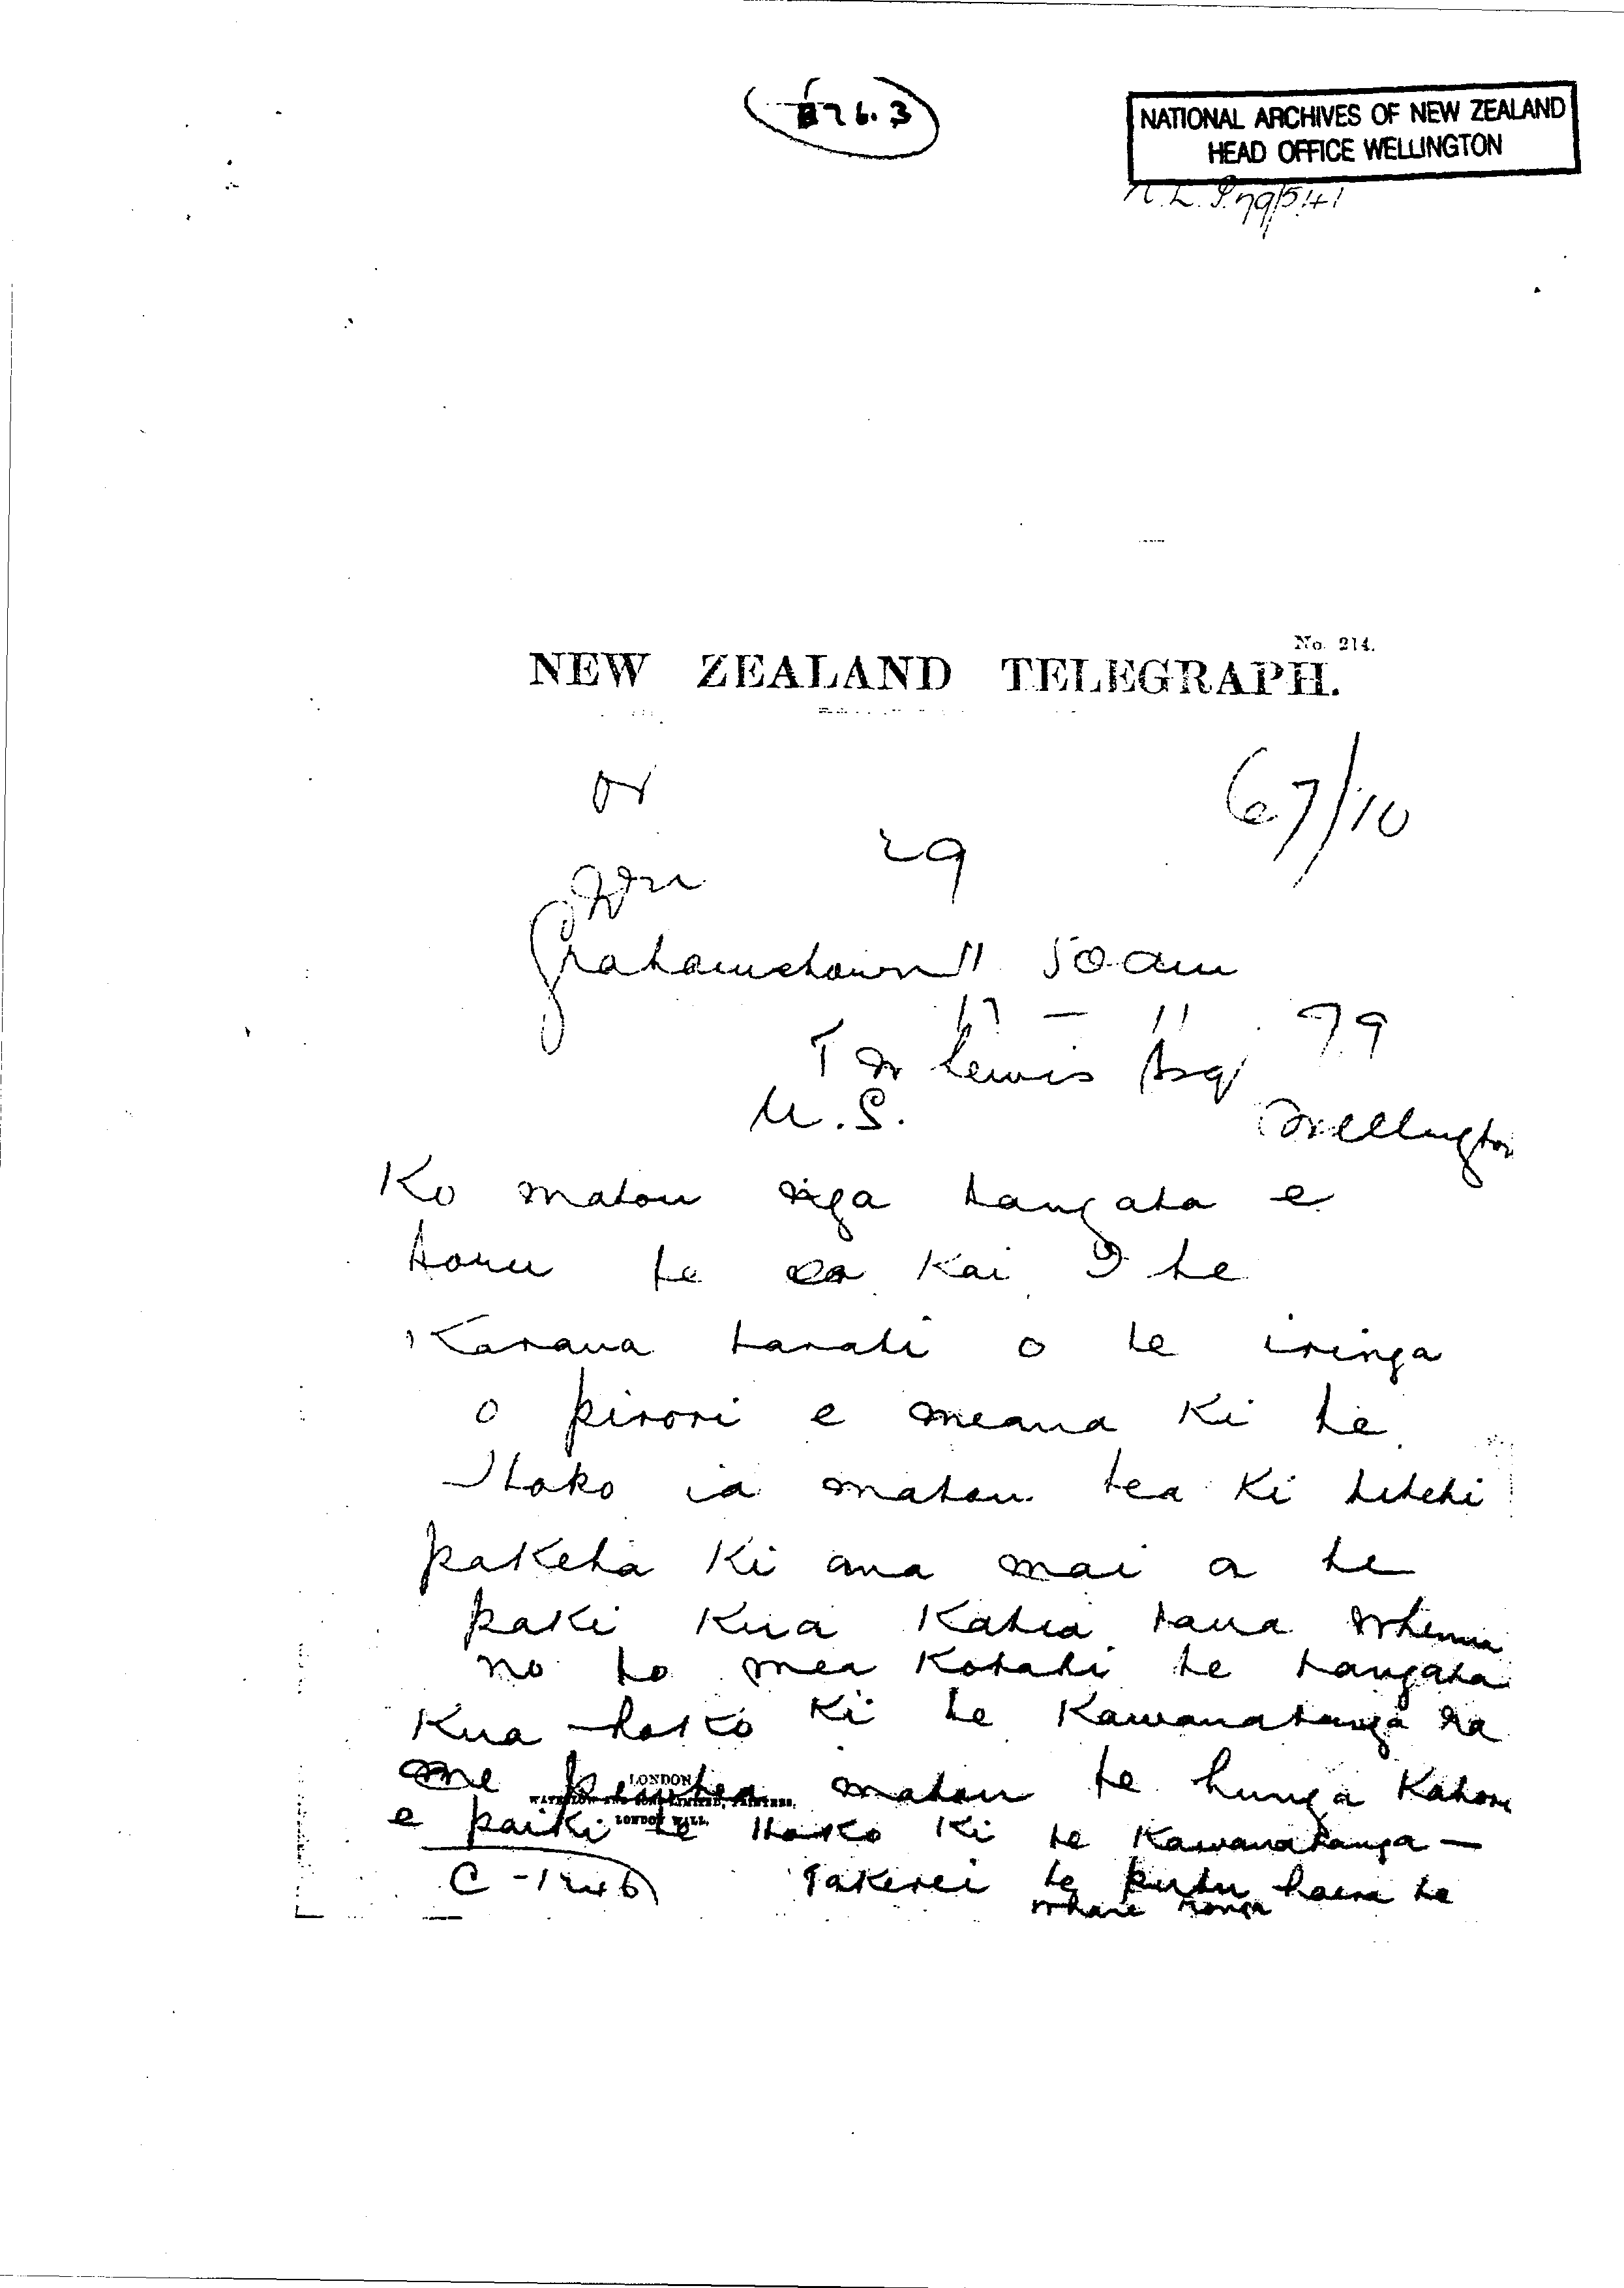 876.3
NATIONAL ARCHIVES OF NEW ZEALAND
HEAD OFFICE WELLINGTON
N.L.P.79/5141
No. 214.
NEW ZEALAND TELEGRAPH.
67/10
29
Grahamstown 11 50 am
17 - 11 . 79
T W Lewis Esq
U.S. Wellington
Ko matou nga tangata e
toru te kai I te
Karana tarati o te iringa
o pirori e meana Ki te
Hoko ia matou tea Ki tetehi
paKeha Ki ana mai a te
paki Kua Katia taua Whenua
no te mea Kotahi te tangata
Kua hoKo Ki te Kawanatanga
me matou te hunga Kahore
e paiki te HoKo Ki te Kawanatanga —
C - 1246 TaKerei te putu haera te
whare
LONDON
WATERLOW AND SONS LIMITED, PRINTERS,
LONDON WALL.